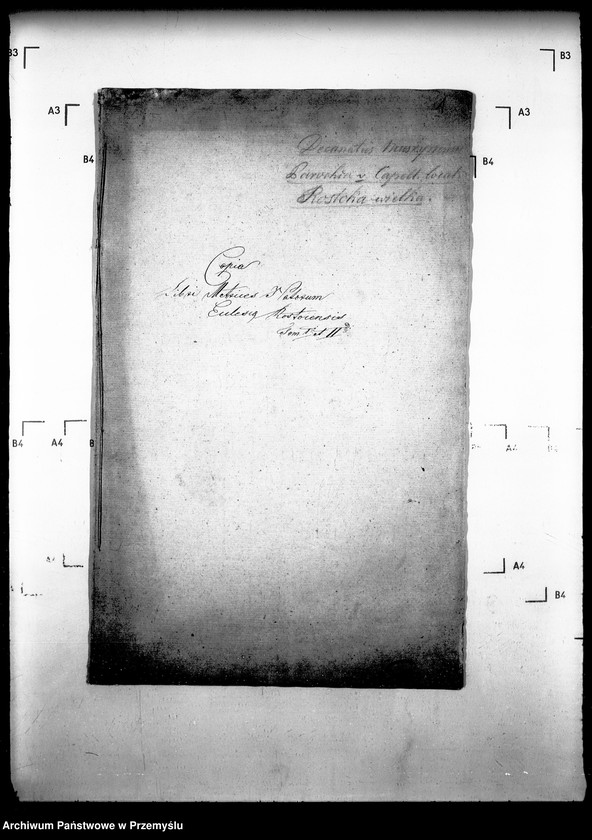 B3
B3
A3
A3
B4
B4
Decanatus
Parochia v. Capell. local.
Rostoka wielka.
Copia
Libri Metrices Natorum
Eclesiæ Rostocensis
Tom. I et II
B4
A4
B
A4
B4
A4
A4
B4
Archiwum Państwowe w Przemyślu